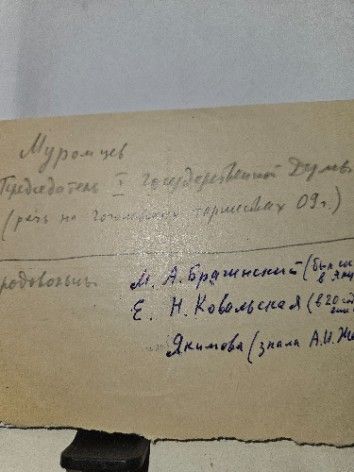 Муромцев
Председатель I государственной Думы
(речь на гоголевских торжествах 09 г.)
М. А. Брагинский (был
в
Е. Н. Ковальская (в 20
Якимова (знала А.И. Же